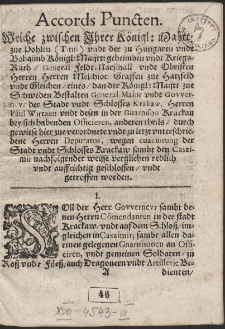 Accords Puncten.
Welche zwischen Ihrer Königl: Maytt:
zue Pohlen (Titul) vndt der zu Hungaren vndt
Bohaimb Königl: Maytt geheimben vndt Kriegs-
Rath / General Feldt-Marschall vndt Obristen
Herren Herren Melchior Graffen zue Hatzfeld
vndt Gleichen / eines / dan der Königl: Maytt zue
Schweden Bestalten General Maior vndt Gouver-
neurs der Stadt vndt Schlosses Krakaw, Herren
Paul Wirtzen vndt denen in der Guarnison Krackau
bey sich habenden Officirern, anderen theils / durch
zu wiese hier zue verordnete vndt zu letzt vnterschrie-
bene Herren Deputatos, wegen evacuirung der
Stadt vndt Schlosses Krackaw sambt den Casi-
mir nachfolgender weise verglichen redlich
vndt auffrichtig geschlossen / vndt
getroffen worden.
I.
SOll der Herr Gouverneur sambt de-
nen Herrn Commendanten in der stadt
Krackaw / vndt auf dem Schloß, im-
gleichen in Casimir, sambt allen da-
rinnen gelegenen Guarnisonen an Offi-
cirern, vndt gemeinen Soldaten / zu
Roß vndt Fueß, auch Dragonern vndt Artillerie Be-
A
dienten/
46
XVII-4543-III